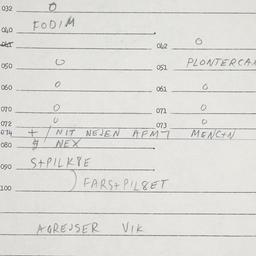 032 O
040 FODIM
041
042 O
050 O
051 PLONTERCAN
060 O
061 O
070 O
071 O
072 O
073 O
074 + / NIT NEJEN AFM7 MENC+N
080 # NEX
090 S+PILK8E
100 FARS+PIL8ET
AGREJSER VIK